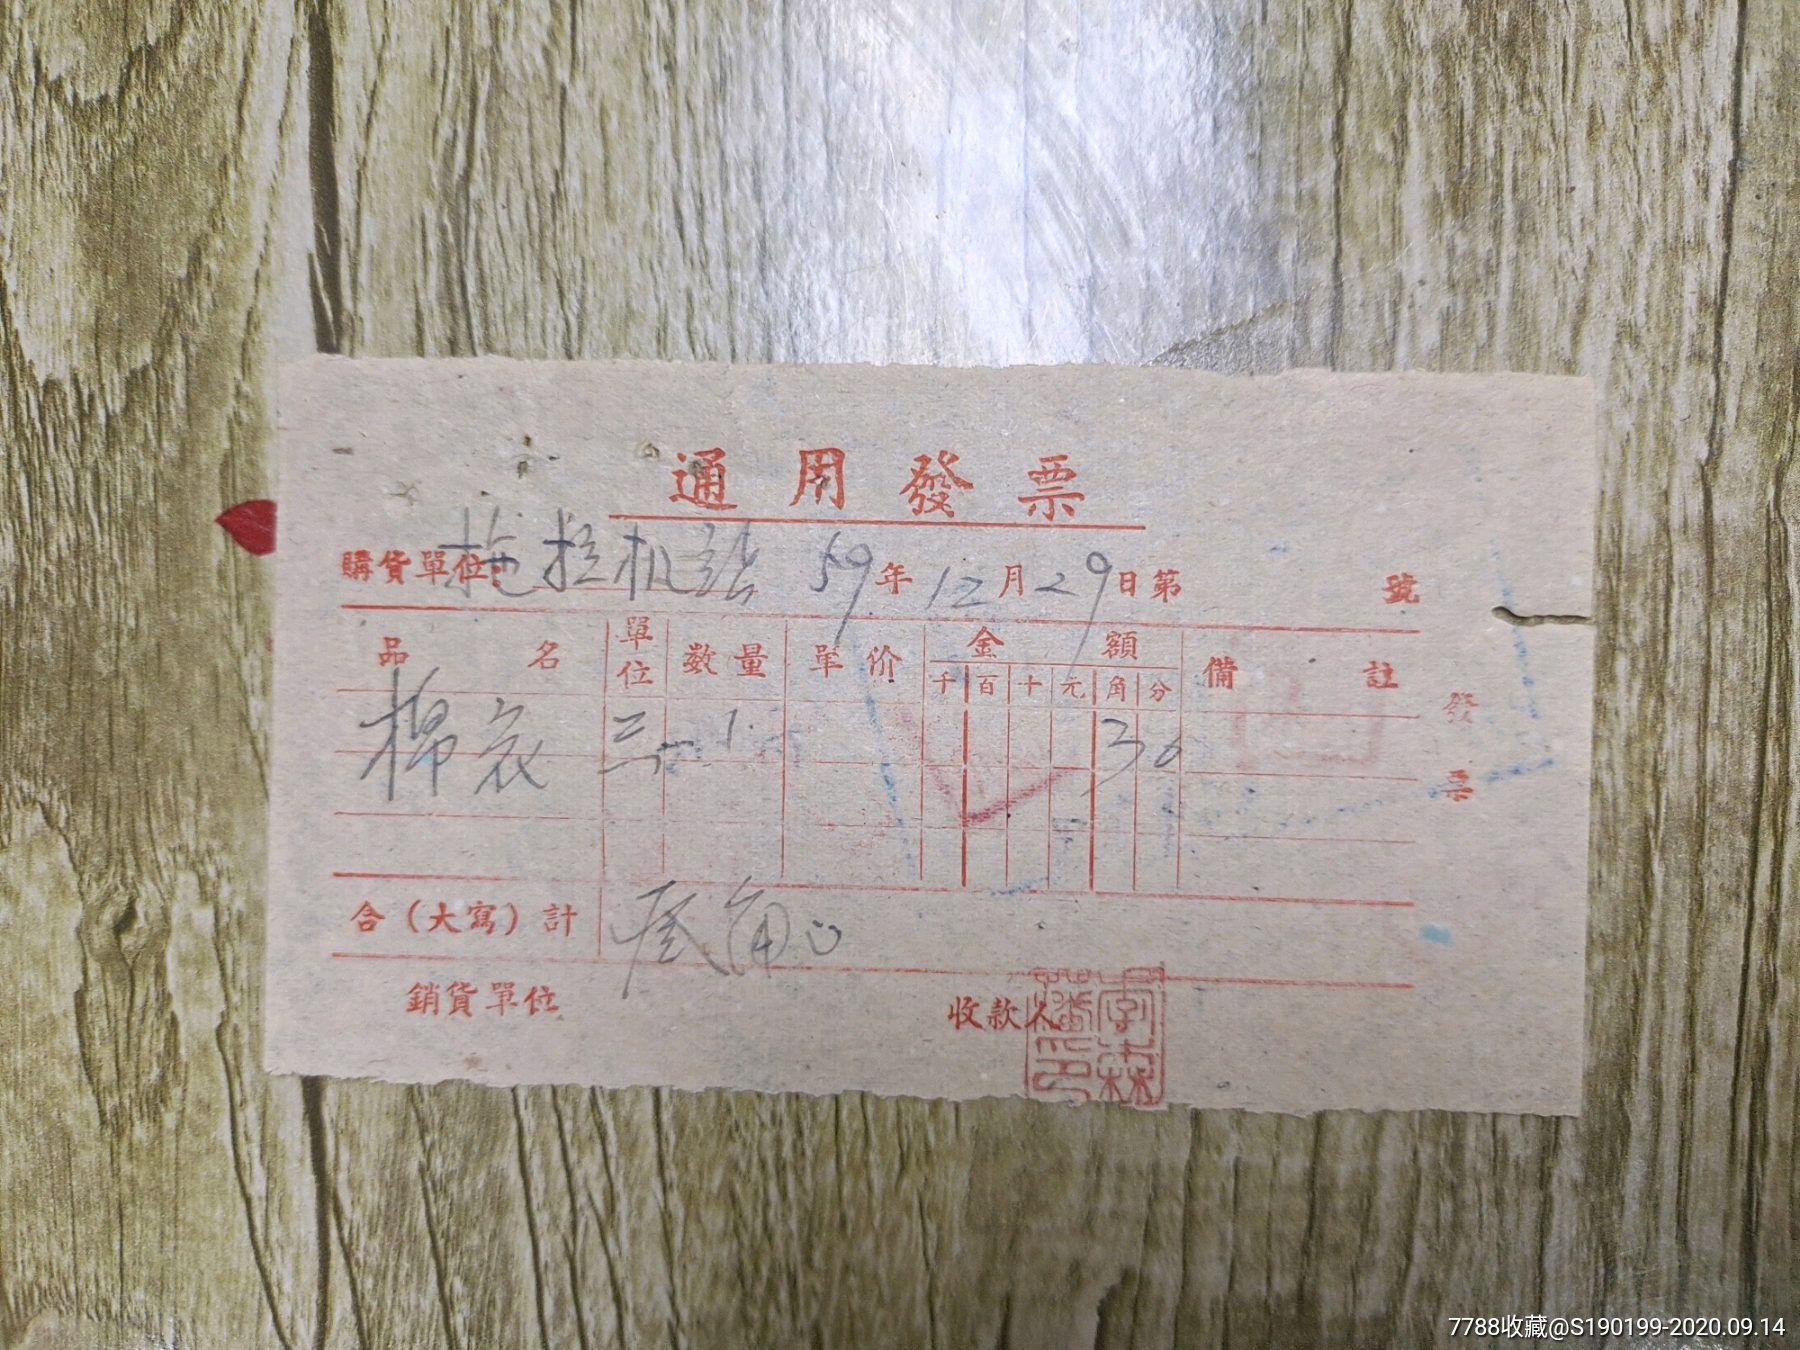 通用發票
購貨單位: 拖拉机站 59年12月29日第 號
品名 單位 数量 單价 金額 備註
千 百 十 元 角 分
棉衣 1 30
合（大寫）計 角
銷貨單位 收款人
發票
7788收藏@S190199-2020.09.14